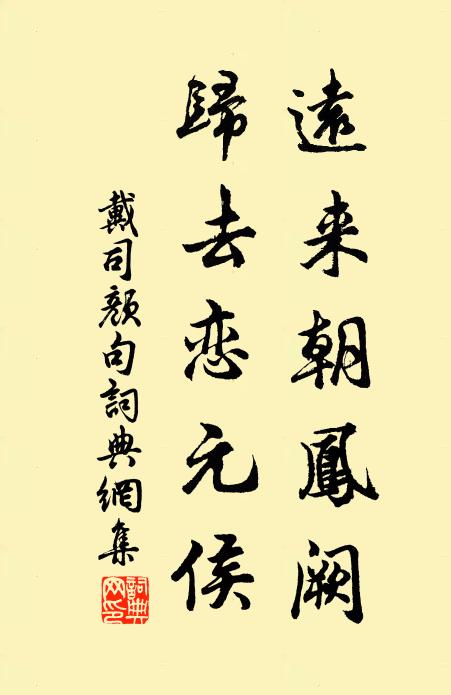 遠来朝鳳闕
歸去恋元侯
戴司顏句詞典網集
詞典网印